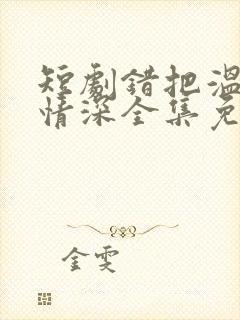 短劇錯把溫
情深全集免
金雯